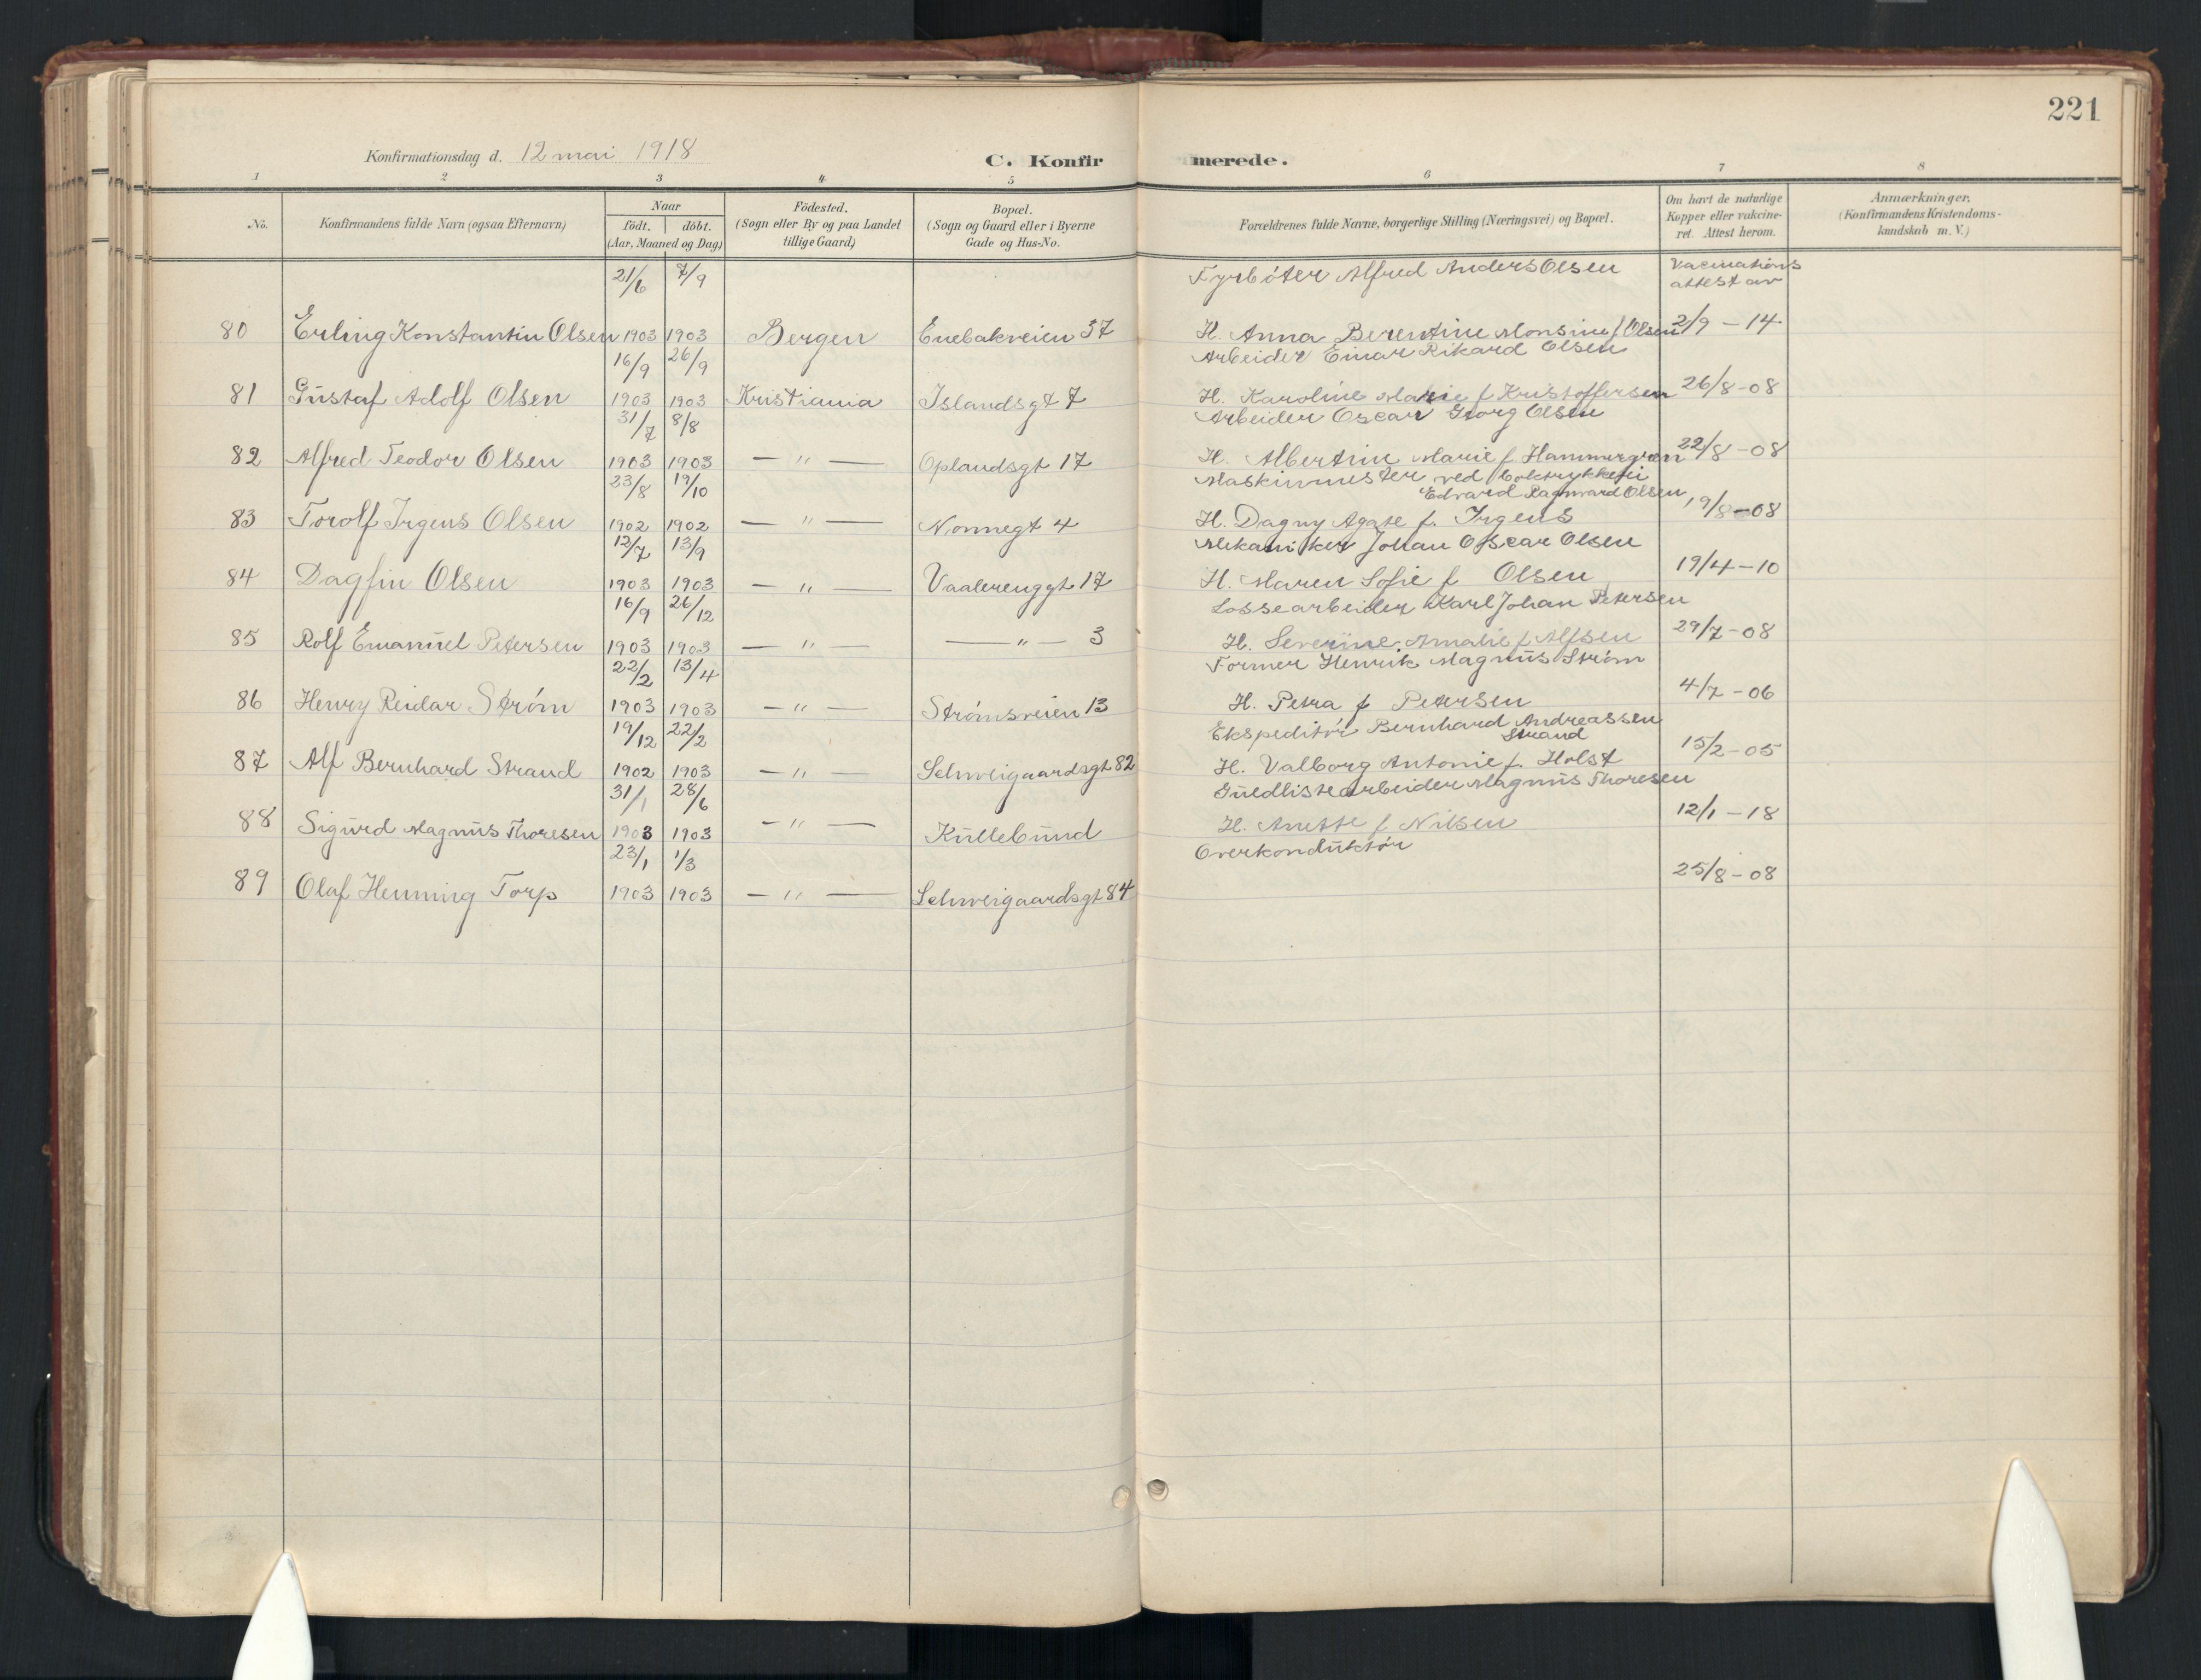 221
Konfirmationsdag d. 12 mai 1918
C. Konfirmerede.
1 2 3 4 5 6 7 8
No.
Konfirmandens fulde Navn (ogsaa Efternavn)
Naar
födt. döbt.
(Aar, Maaned og Dag)
Födested.
(Sogn eller By og paa Landet
tillige Gaard)
Bopæl.
(Sogn og Gaard eller i Byerne
Gade og Hus-No.
Forældrenes fulde Navne, borgerlige Stilling (Næringsvei) og Bopæl.
Om havt de naturlige
Kopper eller vakcine-
ret. Attest herom.
Anmærkninger.
(Konfirmandens Kristendoms-
kundskab m. V.)
21/6 7/9 Fyrbøter Alfred Anders Olsen Vacinations
attest av
80 Erling Konstantin Olsen 1903 1903 Bergen Enebakveien 37 H. Anna Berentine Monsine f. Olsen 2/9 - 14
16/9 26/9 Arbeider Einar Rikard Olsen
81 Gustaf Adolf Olsen 1903 1903 Kristiania Islandsgt 7 H. Karoline Marie f Kristoffersen 26/8 - 08
31/7 8/8 Arbeider Oscar Georg Olsen
82 Alfred Teodor Olsen 1903 1903 — " — Oplandsgt 17 H. Albertine Marie f. Hammergren 22/8 - 08
23/8 19/10 Maskinmester ved boktrykkeri
Edvard Ragnvard Olsen
83 Torolf Irgens Olsen 1902 1902 — " — Nonnegt 4 H. Dagny Agate f. Irgens 19/8 - 08
12/7 13/9 Mekaniker Johan Oscar Olsen
84 Dagfin Olsen 1903 1903 — " — Vaalerenggt 17 H. Maren Sofie f Olsen 19/4 - 10
16/9 26/12 Lossearbeider Karl Johan Petersen
85 Rolf Emanuel Petersen 1903 1903 — " — — " — 3 H. Severine Amalie f Alfsen 29/7 - 08
22/2 13/4 Former Henrik Magnus Strøm
86 Henry Reidar Strøm 1903 1903 — " — Strømsveien 13 H. Petra f Petersen 4/7 - 06
19/12 22/2 Ekspeditør Bernhard Andreassen
Strand
87 Alf Bernhard Strand 1902 1903 — " — Schweigaardsgt 82 H. Valborg Antonie f. Holst 15/2 - 05
31/1 28/6 Guldlistearbeider Magnus Thoresen
88 Sigurd Magnus Thoresen 1903 1903 — " — Kullebund H. Anette f Nilsen 12/1 - 18
23/1 1/3 Overkonduktør
89 Olaf Henning Torp 1903 1903 — " — Schweigaardsgt 84 25/8 - 08